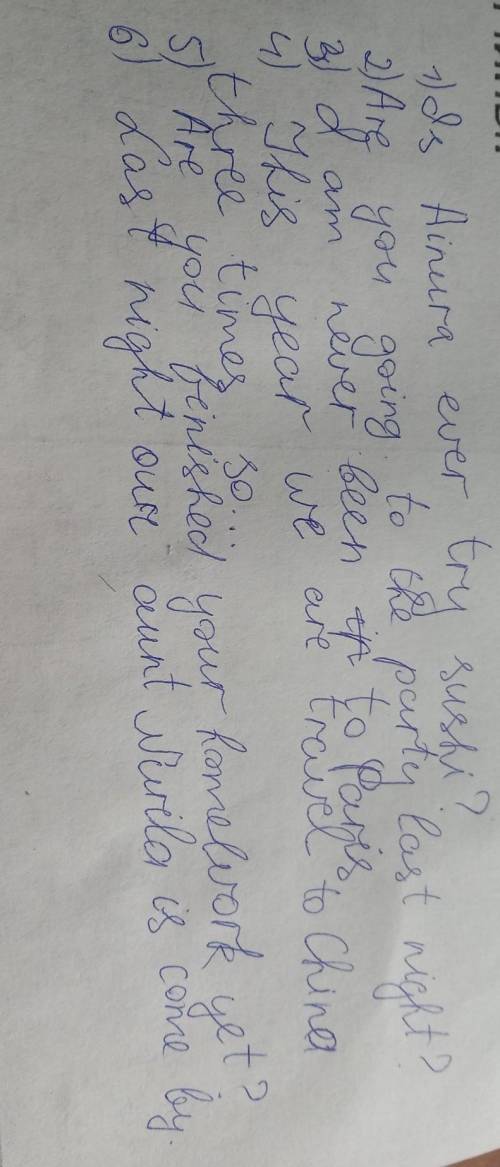 1) Is Ainura ever try sushi?
2) Are you going to the party last night?
3) I am never been to Paris
4) This year we are travel to China
three times so...
5) Are you finished your homelwork yet?
6) Last night our aunt Nurila is come by.